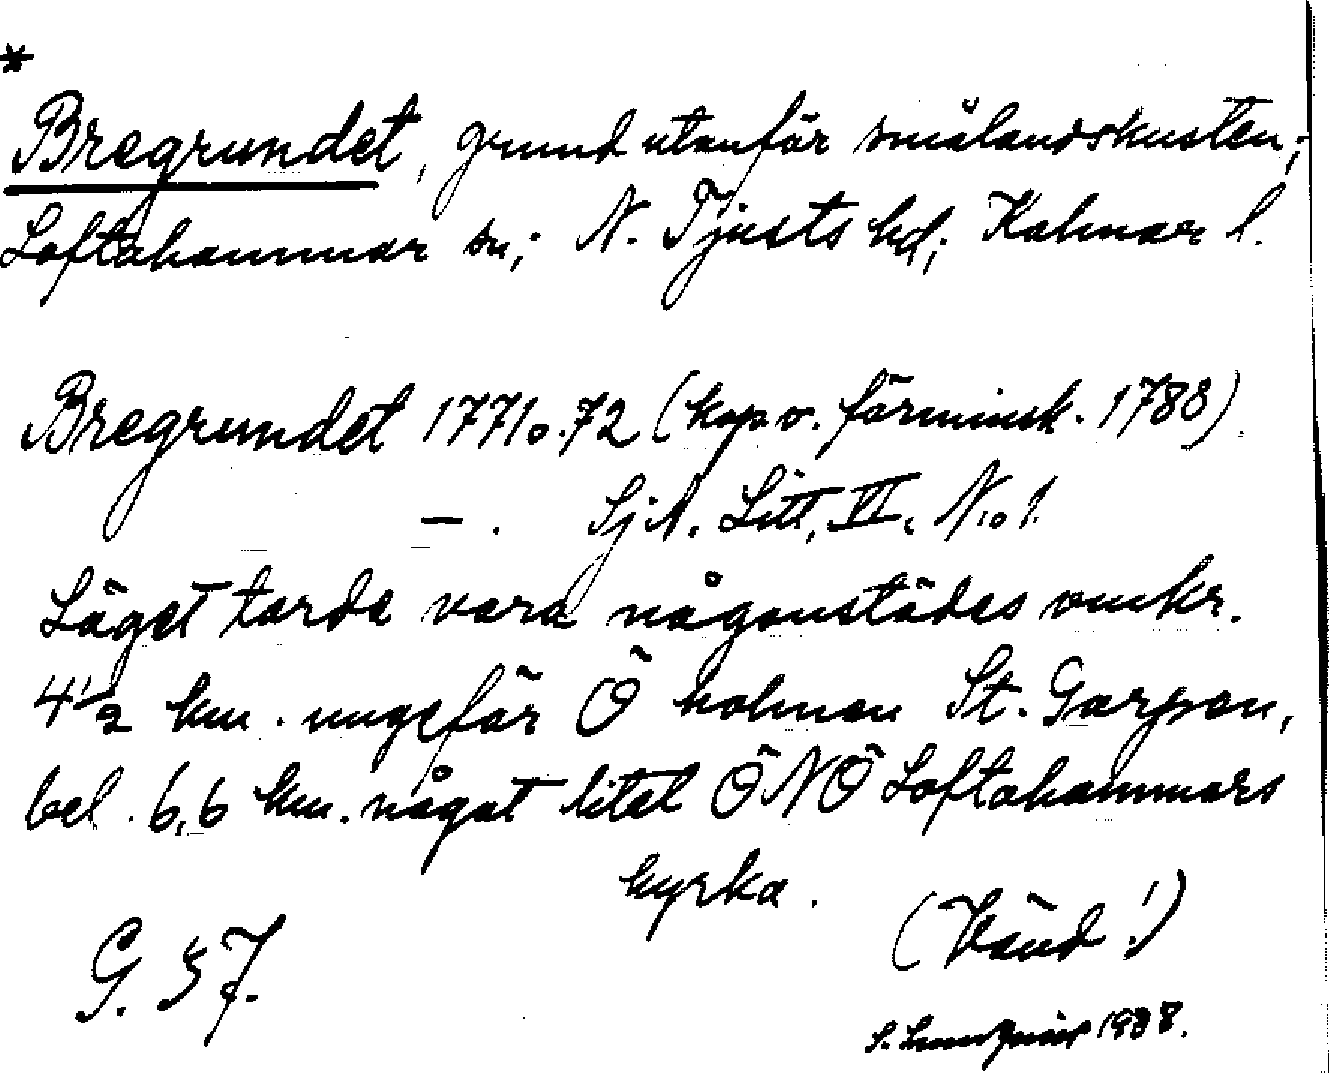 *
Bregrundet, grund utanför smålandskusten;
Loftahammar sn; N. Tjusts hd; Kalmar l.
Bregrundet 1771 o. 72 (kop. o. förminsk. 1788).
— . SjA. Litt. VI. No 1.
Läget torde vara någonstädes omkr.
4 1/2 km. ungefär Ö holmen St. Garpen,
bel. 6,6 km. något litet ÖNÖ Loftahammars
kyrka.
(Vänd!)
G. 57.
S. 1938.